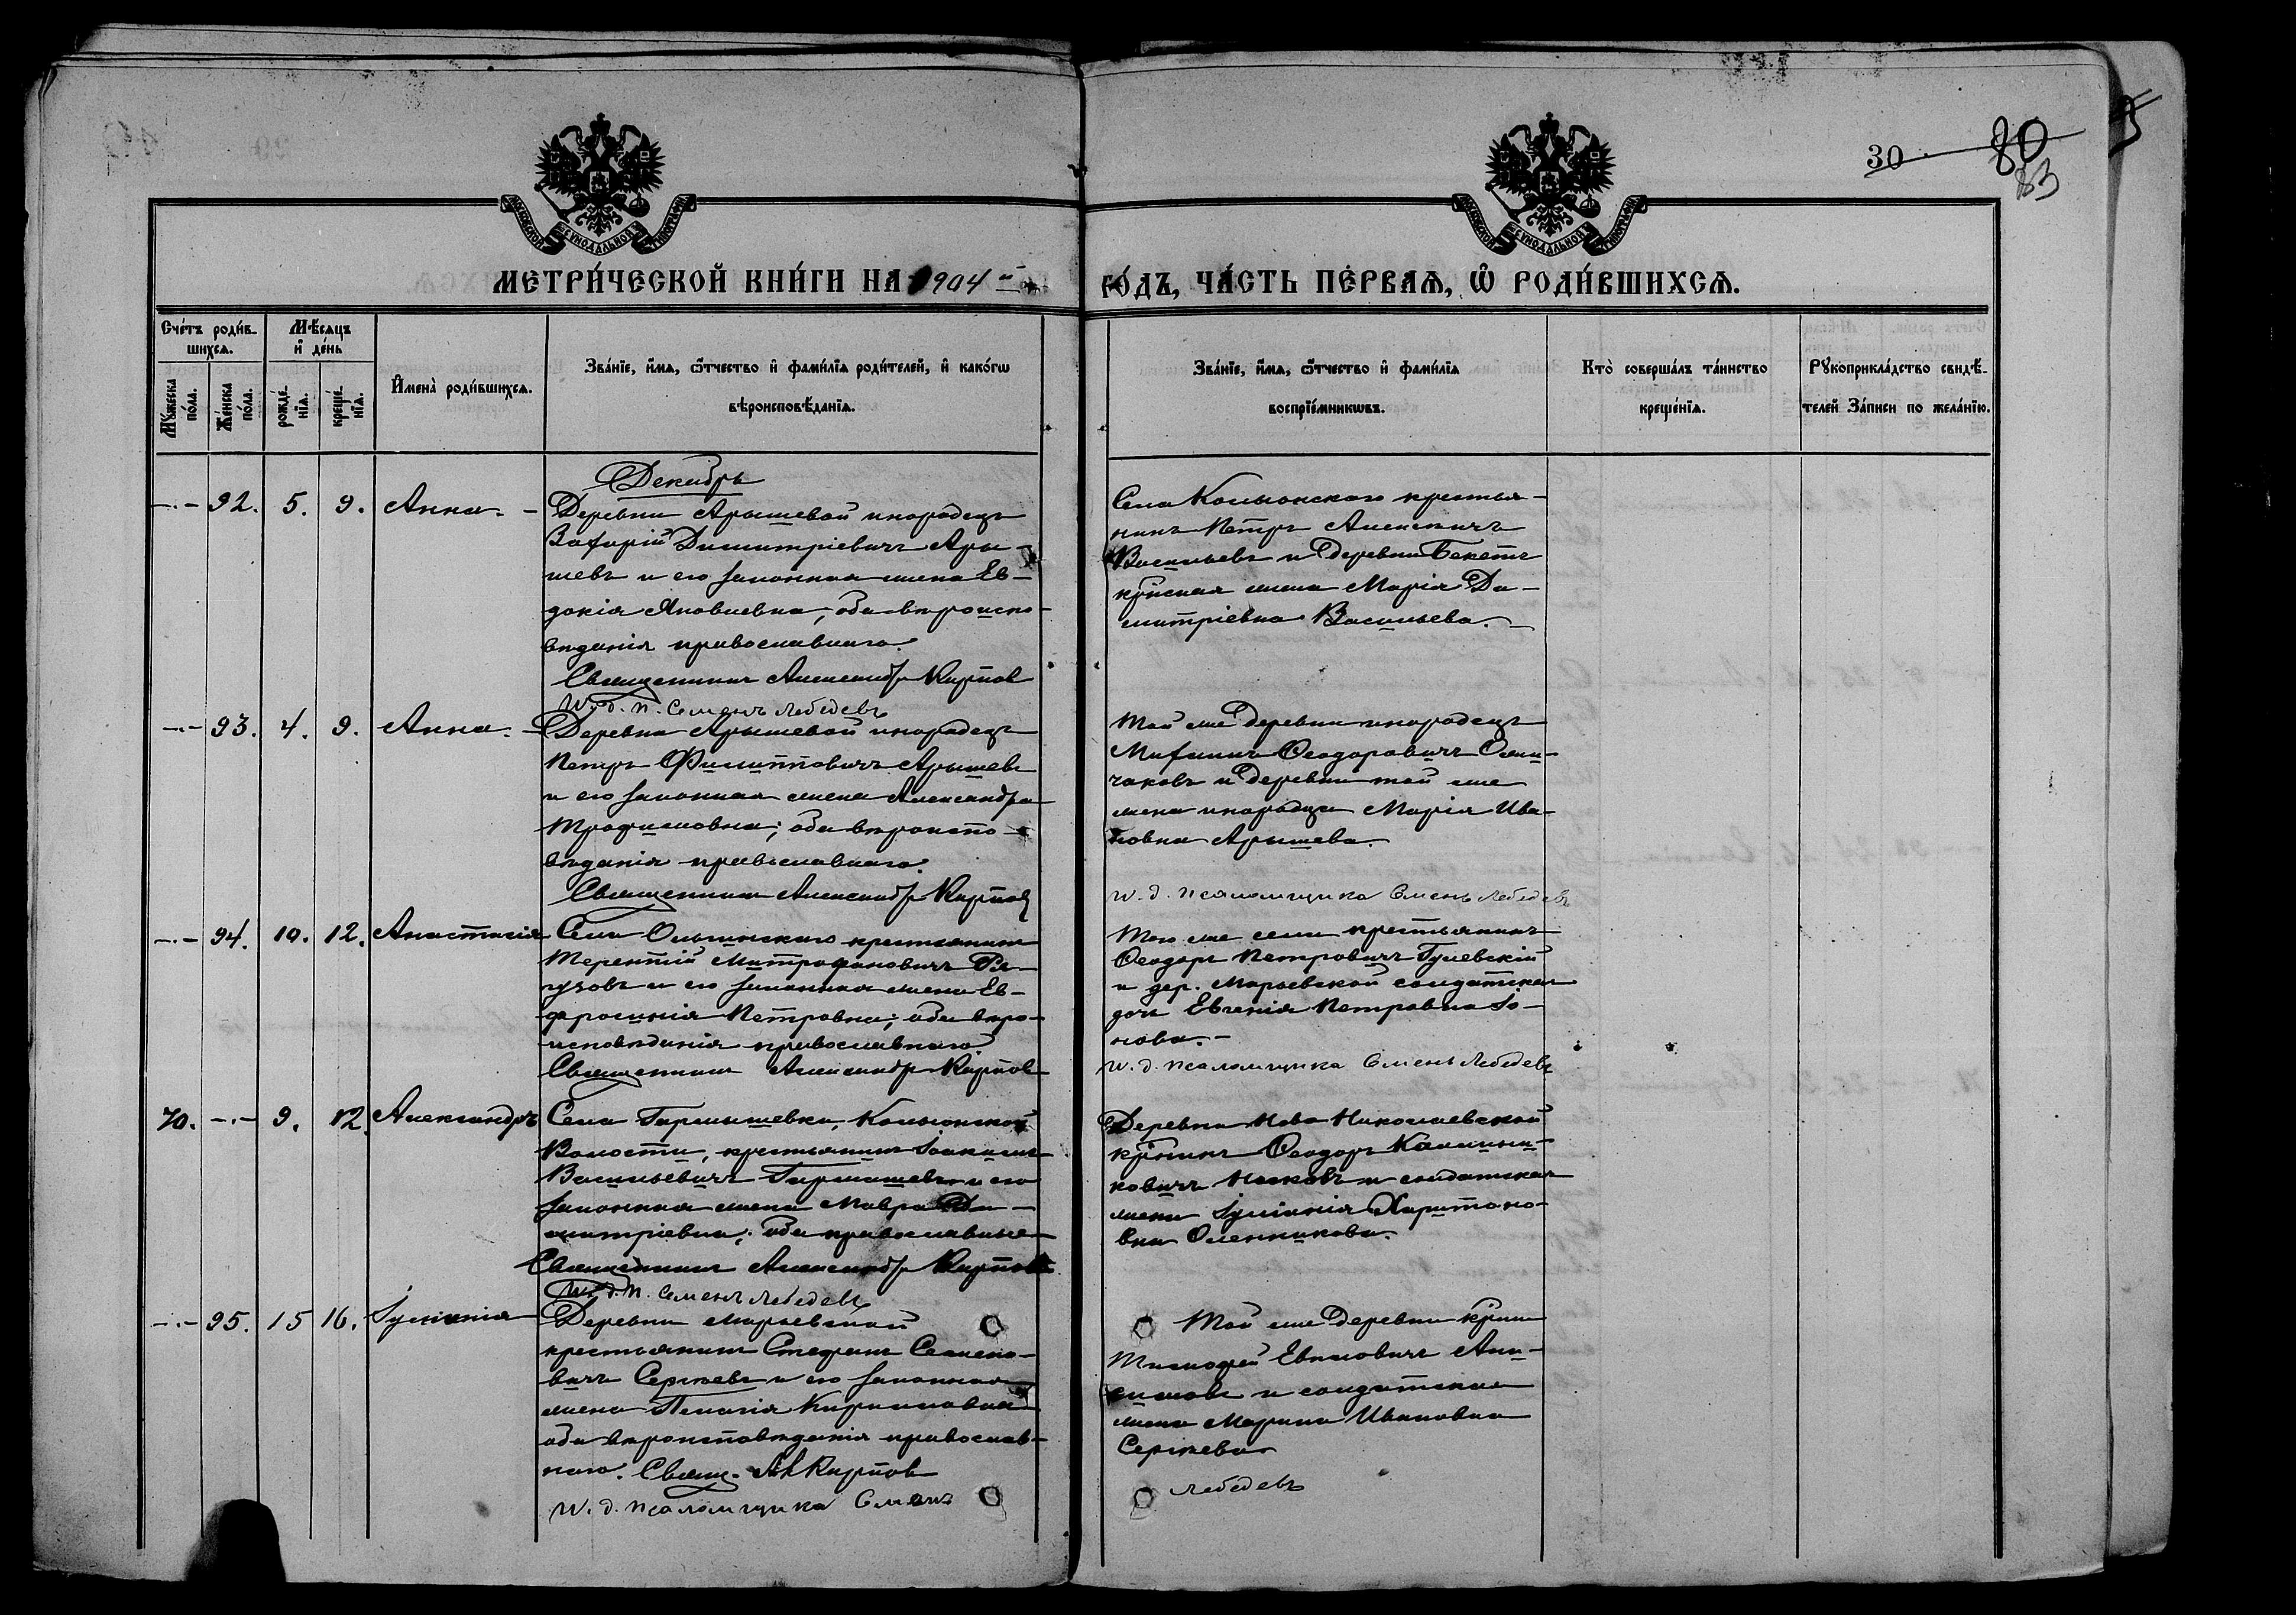 30 80
83
МОСКОВСКОЙ СУНОДАЛЬНОЙ ТИПОГРАФІИ
МОСКОВСКОЙ СУНОДАЛЬНОЙ ТИПОГРАФІИ
МЕТРИ́ЧЕСКОЙ КНИ́ГИ НА 1904 й
ГО́ДЪ, ЧА́СТЬ ПЕ́РВАѦ, Ѽ РОДИ́ВШИХСѦ.
Счétъ роди́в-
шихсѧ.
Мѣ́сѧцъ
и҆ де́нь
Мꙋ́жеска по́ла.
Же́нска по́ла.
рожде́нїѧ.
креще́нїѧ.
И҆мена̀ роди́вшихсѧ.
Зва́нїе, и҆́мѧ, ѻ҆́тчество и҆ фами́лїѧ роди́телей, и҆ како́гѡ
вѣроисповѣ́данїѧ.
Зва́нїе, и҆́мѧ, ѻ҆́тчество и҆ фами́лїѧ
воспрїе́мникѡвъ.
Кто̀ соверша́лъ та́инство
креще́нїѧ.
Рꙋкоприкла́дство свидѣ́-
телей за́писи по жела́нїю.
Декабрь
—·— 92. 5. 9. Анна. —
Деревни Арышевой инородецъ
Захарій Димитріевичъ Ары-
шевъ и его законная жена Ев-
докія Яковлевна, оба вѣроиспо-
вѣданія православнаго.
Священникъ Александръ Карпов
И. д. п. Семенъ Лебедевъ
Села Колыонскаго крестья-
нинъ Петръ Алексѣичъ
Васильевъ и деревни Бекетъ
кр-нская жена Марія Ди-
митріевна Васильева. —
—·— 93. 4. 9. Анна. —
Деревни Арышевой инородецъ
Петръ Филипповичъ Арышевъ
и его законная жена Александра
Трофимовна; оба вѣроиспо-
вѣданія православнаго.
Священникъ Александръ Карпов
Той же деревни инородецъ
Михаилъ Ѳеодоровичъ
и деревни той же
жена инородца Марія Ива-
новна Арышева.
и. д. псаломщика Семенъ Лебедевъ
—·— 94. 10. 12. Анастасія
Села крестьянинъ
Терентій Митрофановичъ
и его законная жена Ев-
фросинія Петровна; оба вѣро-
исповѣданія православнаго
Священникъ Александръ Карпов
Того же села крестьянинъ
Ѳеодоръ Петровичъ Гулевскій
и дер. Марьевской солдатская
дочь Евгенія Петровна
и. д. псаломщика Семенъ Лебедевъ
70. —·— 9. 12. Александръ
Села Гармышевки, Колыонской
Волости, крестьянинъ Іоакимъ
Васильевичъ Гармашевъ и его
законная жена Мавра Ди-
митріевна; оба православные
Священникъ Александръ Карпов
И. д. п. Семенъ Лебедевъ
Деревни Ново Николаевской
кр-нинъ Ѳеодоръ Каллини-
ковичъ Носковъ и солдатская
жена Іуліанія Харитоно-
вна Оленникова.
—·— 95. 15 16. Іуліанія
Деревни Марьевской
крестьянинъ Стефанъ Семено-
вичъ Сергѣевъ и его законная
жена Пелагія Кирилловна
оба вѣроисповѣданія православ-
наго. Свящ. Ал Карпов
И. д. псаломщика Семенъ
Той же деревни кр-нин
Тимофей Евлновичъ Ани-
симовъ и солдатская
жена Марина Ивановна
Сергѣева
Лебедевъ